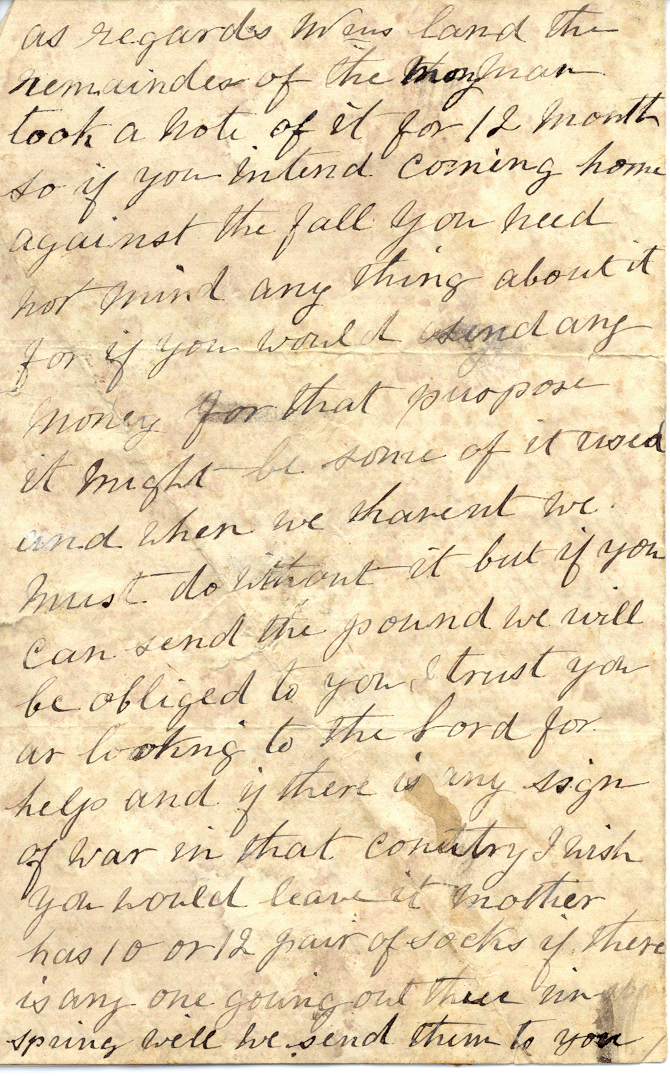 as regards Wms land the
remainder of the
took a note of it for 12 month
so if you intend coming home
against the fall you need
not mind any thing about it
for if you would send any
money for that purpose
it might be some of it used
and when we havent we
must do without it but if you
can send the pound we will
be obliged to you I trust you
ar looking to the Lord for
help and if there is any sign
of war in that country I wish
you would leave it mother
has 10 or 12 pair of socks if there
is any one gouing out there in
spring will we send them to you